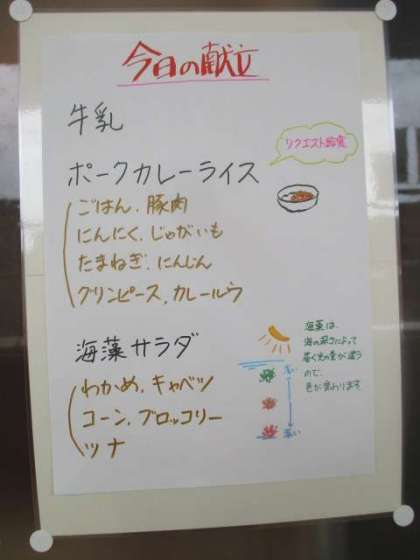 今日の献立
牛乳
リクエスト給食
ポークカレーライス
ごはん、豚肉
にんにく、じゃがいも
たまねぎ、にんじん
グリンピース、カレールウ
海藻サラダ
わかめ、キャベツ
コーン、ブロッコリー
ツナ
海藻は、
海の深さによって
届く光の量が違う
ので、
色が変わります
浅い
深い